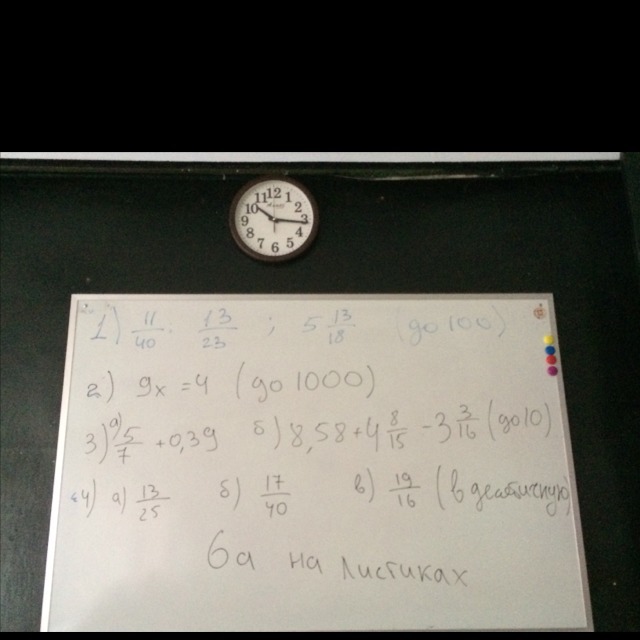 12
11 1
10 2
9 3
8 4
7 5
6
1) 11/40; 13/23; 5 13/18 (до 100)
2) 9x = 4 (до 1000)
3) а) 5/7 + 0,39 б) 8,58 + 4 8/15 - 3 3/16 (до 10)
4) а) 13/25 б) 17/40 в) 19/16 (в десятичную)
6а на листиках